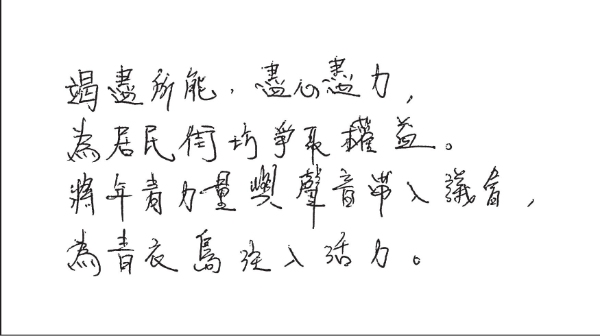 竭盡所能，盡心盡力，
為居民街坊爭取權益。
將年青力量與聲音帶入議會，
為青衣島注入活力。